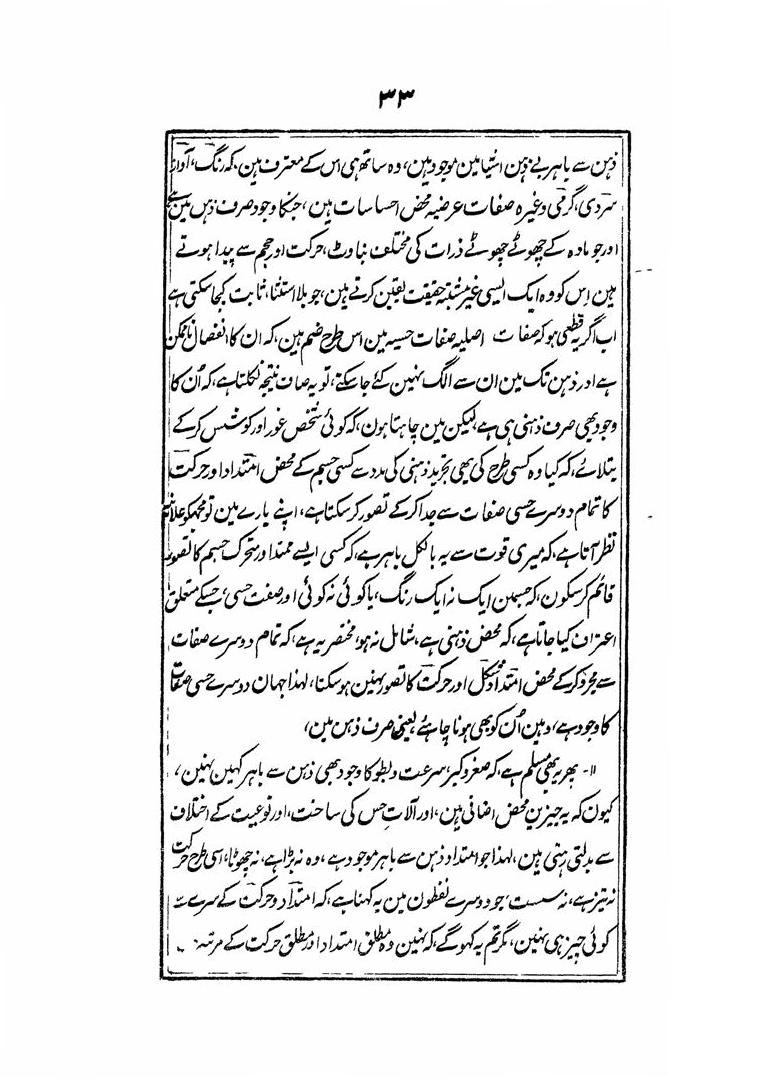 ۳۳
ذہن سے باہر بے ذہن اشیا مین موجود ہین، وہ ساتھ ہی اس کے معترف ہین، کہ رنگ، آواز
سردی، گرمی وغیرہ صفات عرضیہ محض احساسات ہین، جنکا وجود صرف ذہن مین ہے
اور جو مادہ کے چھوٹے چھوٹے ذرات کی مختلف بناوٹ، حرکت اور حجم سے پیدا ہوتے
ہین اِس کو وہ ایک ایسی غیر مشتبہ حقیقت یقین کرتے ہین، جو بلا استثنا، ثابت کیجا سکتی ہے
اب اگر یہ قطعی ہو کہ صفات اصلیہ صفات حسیہ مین اس طرح ضم ہین، کہ ان کا انفصال ناممکن
ہے اور ذہن تک مین ان سے الگ نہین کئے جا سکتے، تو یہ صاف نتیجہ نکلتا ہے، کہ اُن کا
وجود بھی صرف ذہنی ہی ہے، لیکن مین چاہتا ہون، کہ کوئی شخص غور اور کوشش کر کے
بتلائے، کہ کیا وہ کسی طرح کی بھی تجرید ذہنی کی مدد سے کسی جسم کے محض امتداد اور حرکت
کا تمام دوسرے حسی صفات سے جدا کر کے تصور کر سکتا ہے، اپنے بارے مین تو مجھکو علانیہ
نظر آتا ہے، کہ میری قوت سے یہ بالکل باہر ہے، کہ کسی ایسے ممتد اور متحرک جسم کا تصور
قائم کر سکون، کہ جسمین ایک نہ ایک رنگ، یا کوئی نہ کوئی اور صفت حسی، جسکے متعلق
اعتراف کیا جاتا ہے، کہ محض ذہنی ہے، شامل نہ ہو، مختصر یہ ہے، کہ تمام دوسرے صفات
سے مجرد کر کے محض امتداد و شکل اور حرکت کا تصور نہین ہو سکتا، لہذا جہان دوسرے حسی صفات
کا وجود ہے، وہین اُن کو بھی ہونا چاہئے، یعنی صرف ذہن مین،
۱۱- پھر یہ بھی مسلم ہے، کہ صغر و کبر، سرعت و بطو کا وجود بھی ذہن سے باہر کہین نہین،
کیون کہ یہ چیزین محض اضافی ہین، اور آلاتِ حس کی ساخت، اور نوعیت کے اختلاف
سے بدلتی رہتی ہین، لہذا جو امتداد ذہن سے باہر موجود ہے، وہ نہ بڑا ہے، نہ چھوٹا، اسی طرح حرکت
نہ تیز ہے، نہ سست، جو دوسرے لفظون مین یہ کہنا ہے، کہ امتداد و حرکت کے سرے سے
کوئی چیز ہی نہین، مگر تم یہ کہو گے، کہ نہین وہ مطلق امتداد اور مطلق حرکت کے مرتبہ